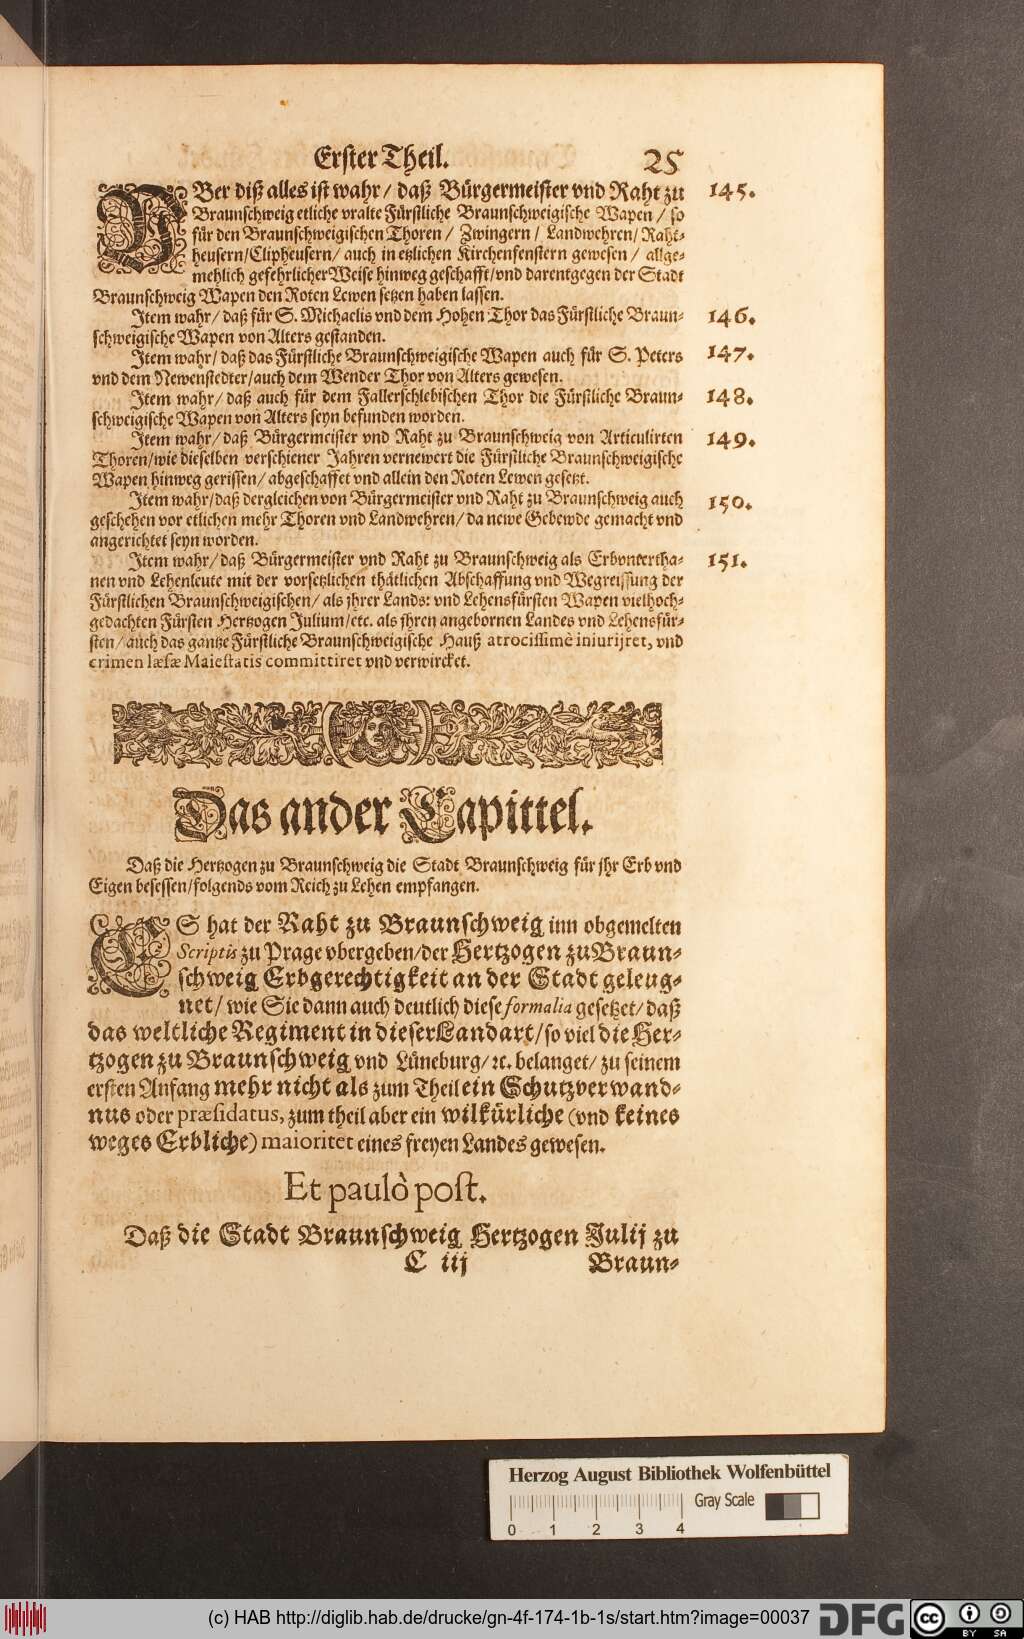 Erster Theil. 25
VBer diß alles ist wahr / daß Bürgermeister vnd Raht zu 145.
Braunschweig etliche vralte Fürstliche Braunschweigische Wapen / so
für den Braunschweigischen Thoren / Zwingern / Landwehren / Raht-
heusern / Cliphensern / auch in etzlichen Kirchenfenstern gewesen / allge-
mehlich gefehrlicher Weise hinweg geschafft / vnd darentgegen der Stadt
Braunschweig Wapen den Roten Lewen setzen haben lassen.
Item wahr / daß für S. Michaelis vnd dem Hohen Thor das Fürstliche Braun- 146.
schweigische Wapen von Alters gestanden.
Item wahr / daß das Fürstliche Braunschweigische Wapen auch für S. Peters 147.
vnd dem Newenstedter / auch dem Wender Thor von Alters gewesen.
Item wahr / daß auch für dem Fallerschlebischen Thor die Fürstliche Braun- 148.
schweigische Wapen von Alters seyn befunden worden.
Item wahr / daß Bürgermeister vnd Raht zu Braunschweig von Articulirten 149.
Thoren / wie dieselben verschiener Jahren vernewert die Fürstliche Braunschweigische
Wapen hinweg gerissen / abgeschaffet vnd allein den Roten Lewen gesetzt.
Item wahr / daß dergleichen von Bürgermeister vnd Raht zu Braunschweig auch 150.
geschehen vor etlichen mehr Thoren vnd Landwehren / da newe Gebewde gemacht vnd
angerichtet seyn worden.
Item wahr / daß Bürgermeister vnd Raht zu Braunschweig als Erbvntertha- 151.
nen vnd Lehenleute mit der vorsetzlichen thätlichen Abschaffung vnd Wegreissung der
Fürstlichen Braunschweigischen / als jhrer Lands: vnd Lehensfürsten Wapen vielhoch-
gedachten Fürsten Hertzogen Julium / etc. als jhren angebornen Landes vnd Lehensfür-
sten / auch das gantze Fürstliche Braunschweigische Hauß atrocissimè iniurijret, vnd
crimen læsæ Maiestatis committiret vnd verwircket.
Das ander Capittel.
Daß die Hertzogen zu Braunschweig die Stadt Braunschweig für jhr Erb vnd
Eigen besessen / folgends vom Reich zu Lehen empfangen.
ES hat der Raht zu Braunschweig inn obgemelten
Scriptis zu Prage vbergeben / der Hertzogen zu Braun-
schweig Erbgerechtigkeit an der Stadt geleug-
net / wie Sie dann auch deutlich diese formalia gesetzet / daß
das weltliche Regiment in dieser Landart / so viel die Her-
tzogen zu Braunschweig vnd Lüneburg / ꝛc. belanget / zu seinem
ersten Anfang mehr nicht als zum Theil ein Schutzverwand-
nus oder præsidatus, zum theil aber ein wilkürliche (vnd keines
weges Erbliche) maioritet eines freyen Landes gewesen.
Et paulò post.
Daß die Stadt Braunschweig Hertzogen Julij zu
C iij Braun-
Herzog August Bibliothek Wolfenbüttel
Gray Scale
0 1 2 3 4
(c) HAB http://diglib.hab.de/drucke/gn-4f-174-1b-1s/start.htm?image=00037 DFG cc BY SA